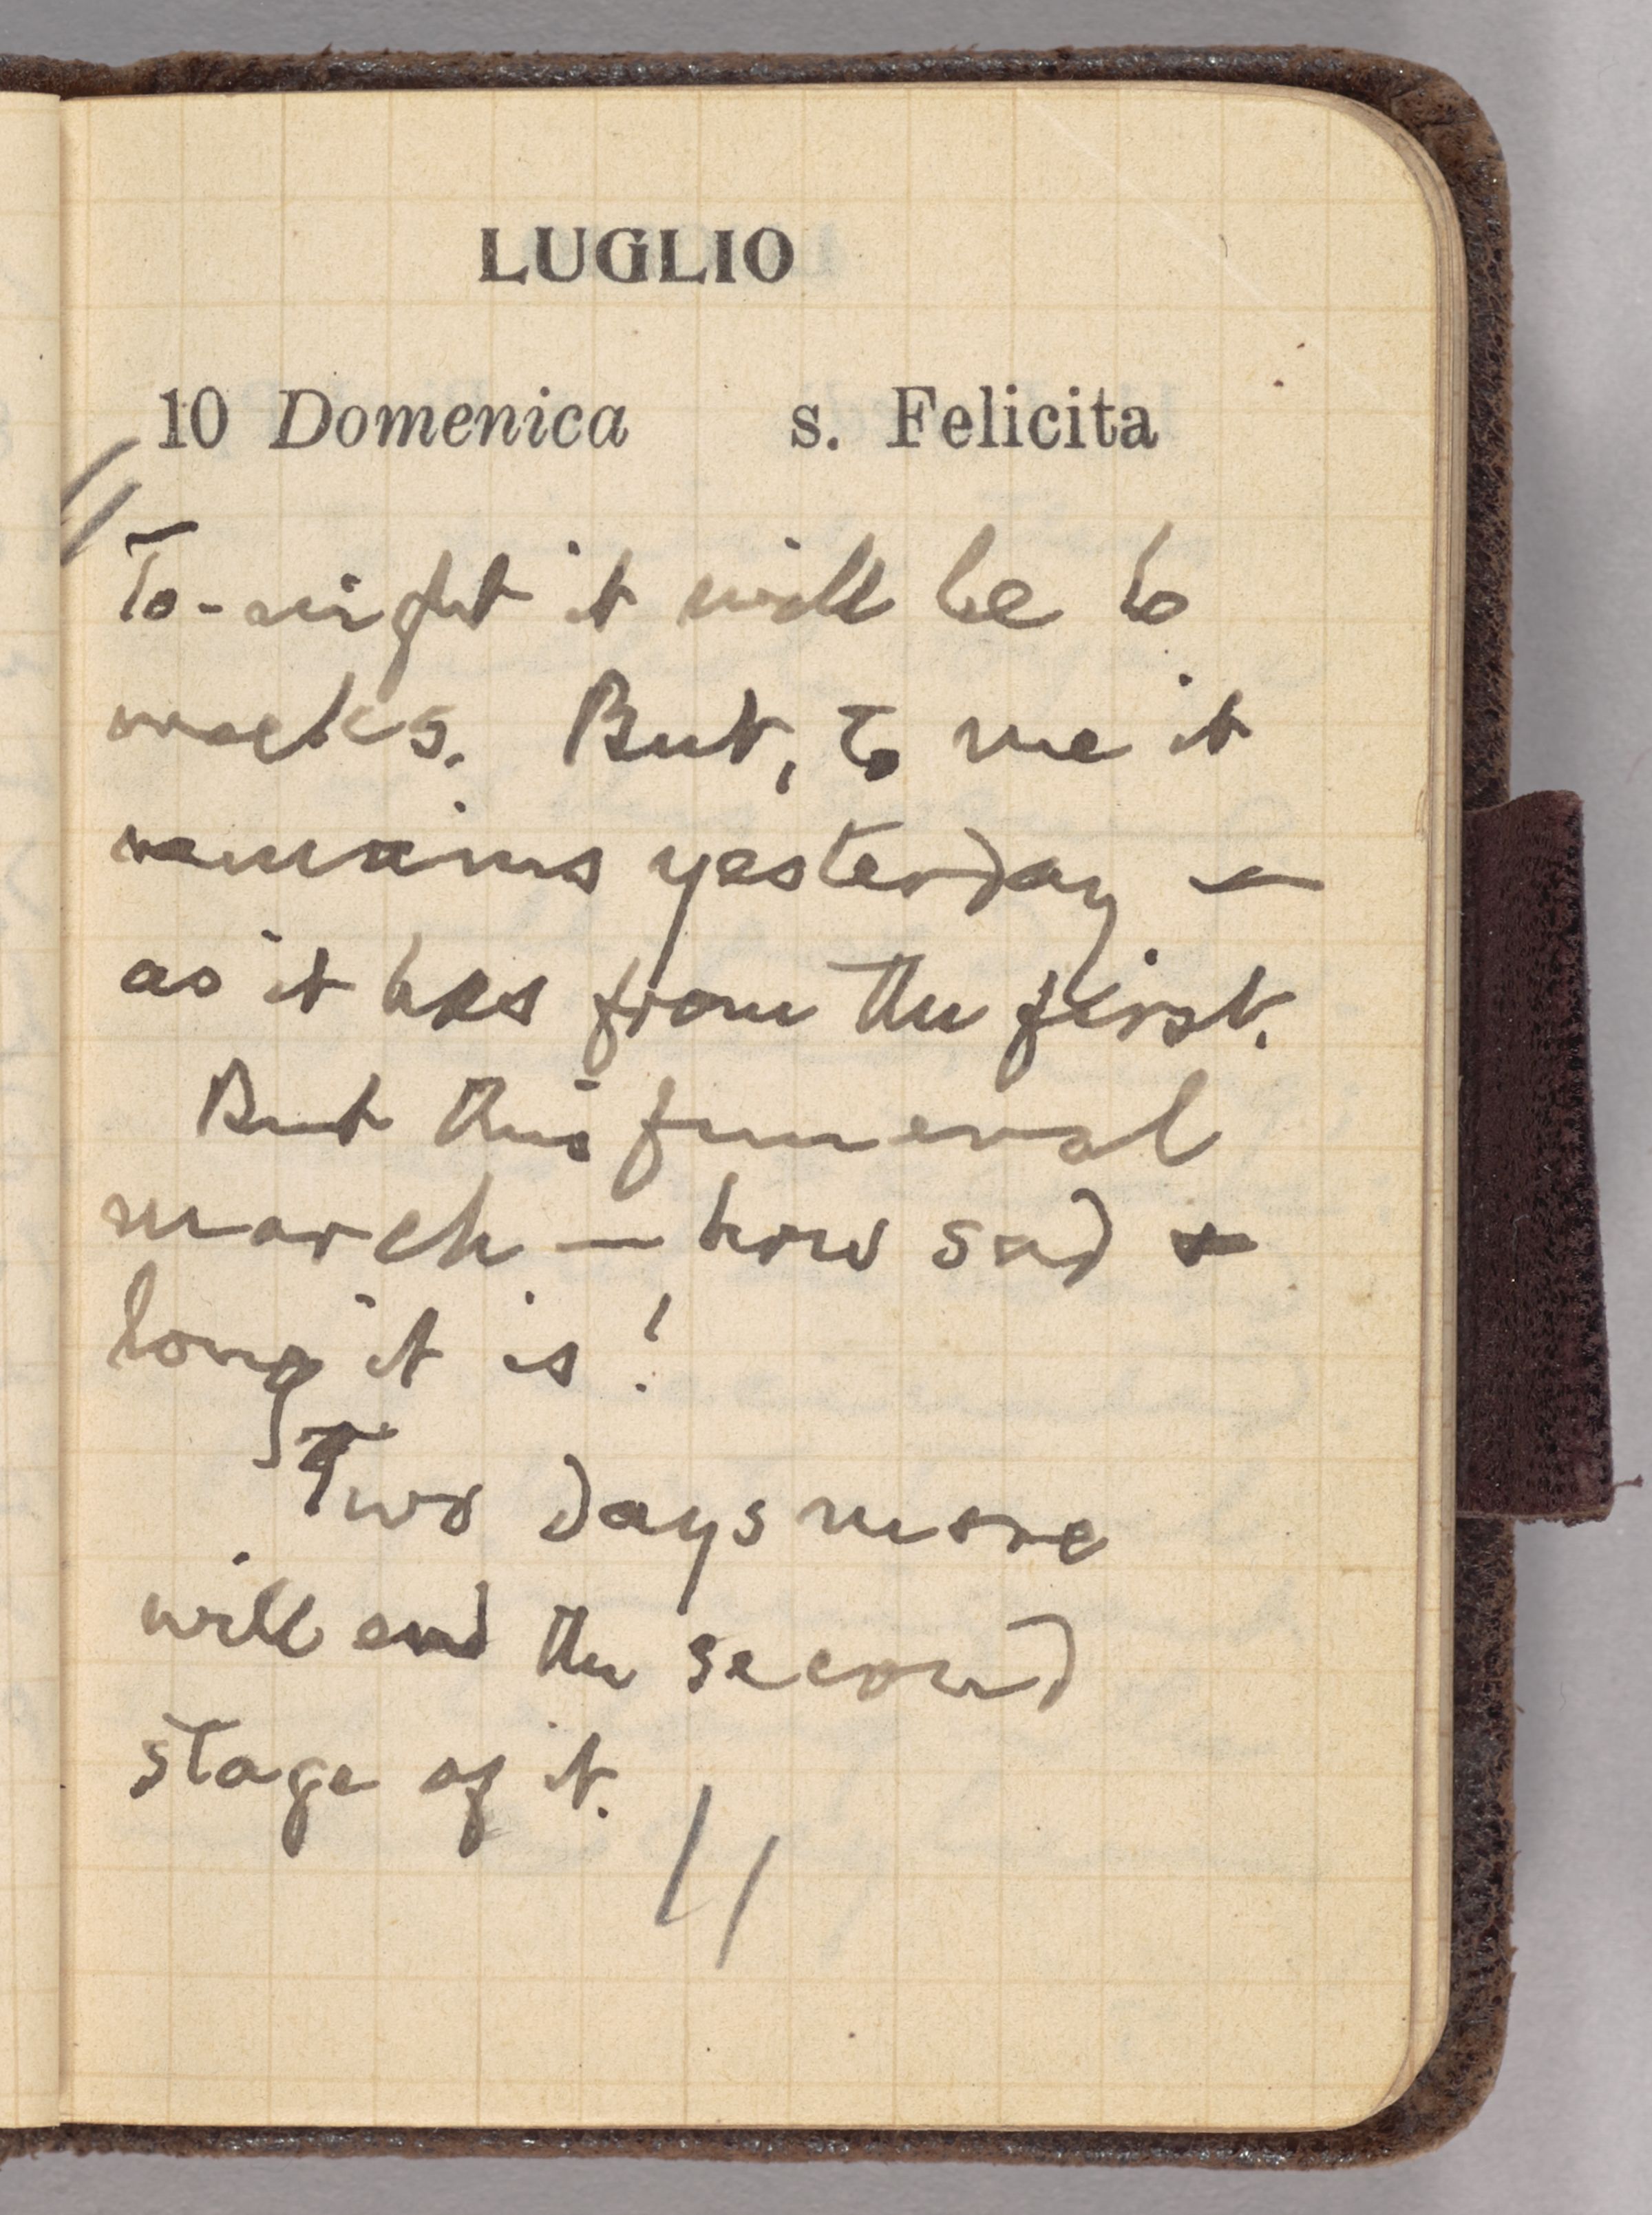 LUGLIO
10 Domenica s. Felicita
To-night it will be 6
weeks. But, to me it
remains yesterday —
as it has from the first.
But this funeral
march — how sad &
long it is!
Two days more
will end the second
stage of it.